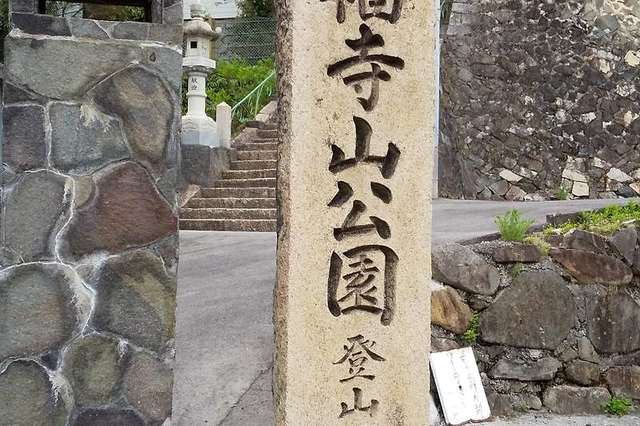 福寺山公園登山